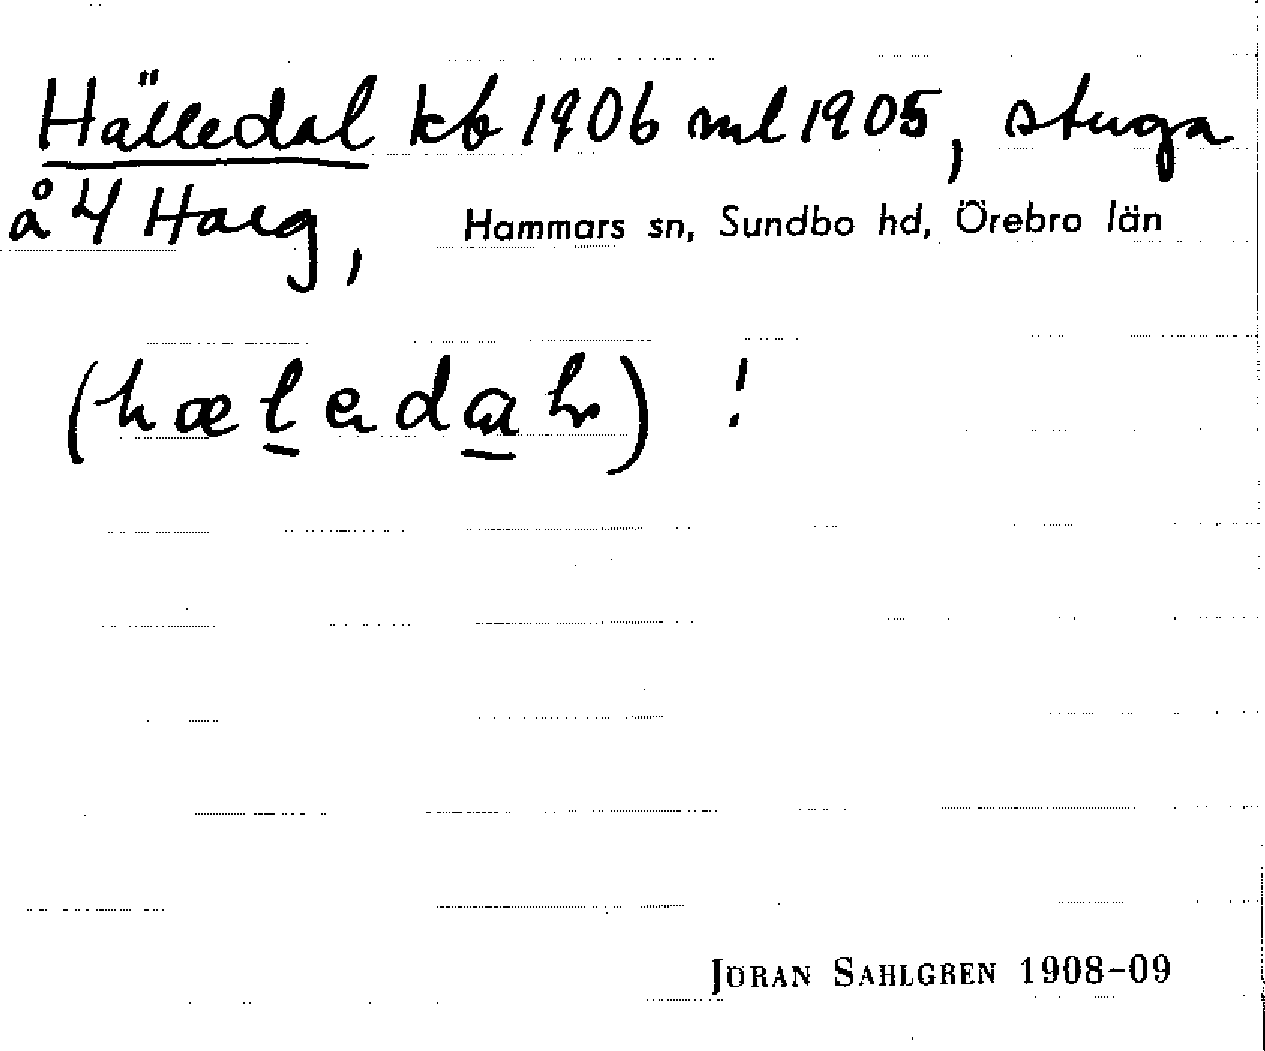 Hälledal kb 1906 ml 1905, stuga
å 4 Harg, Hammars sn, Sundbo hd, Örebro län
(hælədaɩ) !
JÖRAN SAHLGREN 1908-09